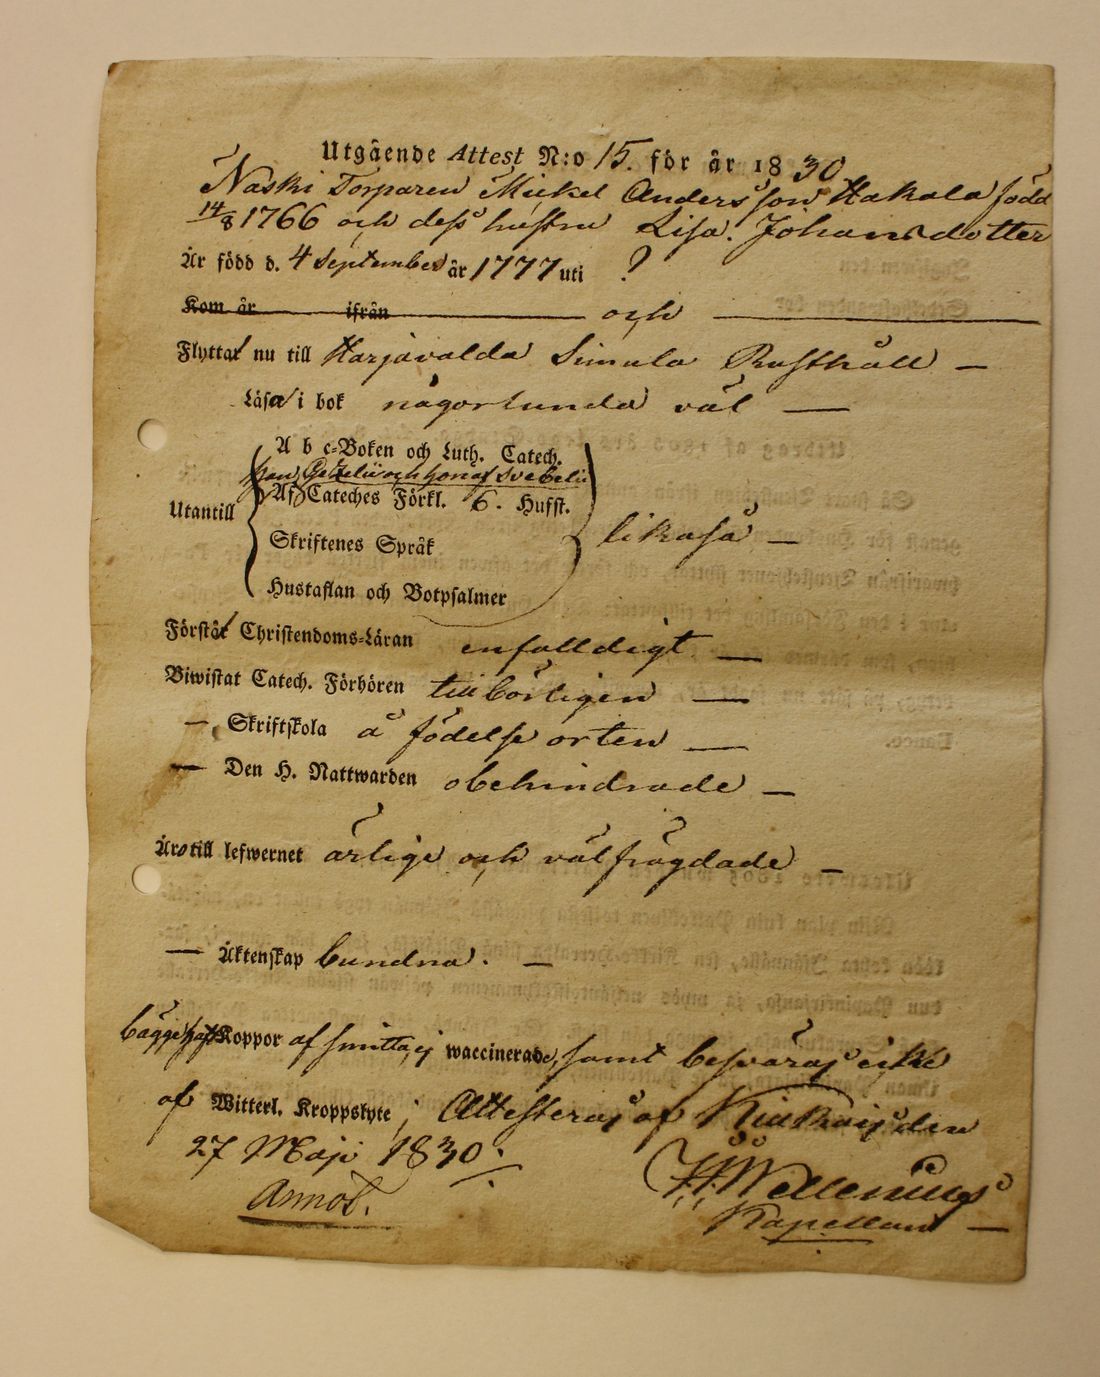 Utgående Attest N:o 15. för år 1830
Naski Torparen Mickel Andersson Hakala född
14/8 1766 och dess hustru Lisa Johansdotter
Är född d. 4 September år 1777 uti ?
Kom år ifrån och
Flyttar nu till Harjavalda Simula Rusthåll —
Läsa i bok någorlunda väl —
A b c-Boken och Luth. Catech.
han Gezelii och hon af Svebelii
Utantill Af Cateches Förkl. 6. Hufst.
Skriftenes Språk likaså —
Hustaflan och Botpsalmer
Förstå Christendoms-Läran enfalldigt —
Biwistat Catech. Förhören tillbörligen —
— Skriftskola å födelse orten —
— Den H. Nattwarden obehindrade —
Äro till lefwernet ärlige och välfrägdade —
— Äktenskap bundna. —
bägge haft Koppor af smitta, ej waccinerade, samt besväras icke
af Witterl. Kroppslyte; Attesteras af Kiukais den
27 Maji 1830.
Annot.
Wellenius
Kapellan —